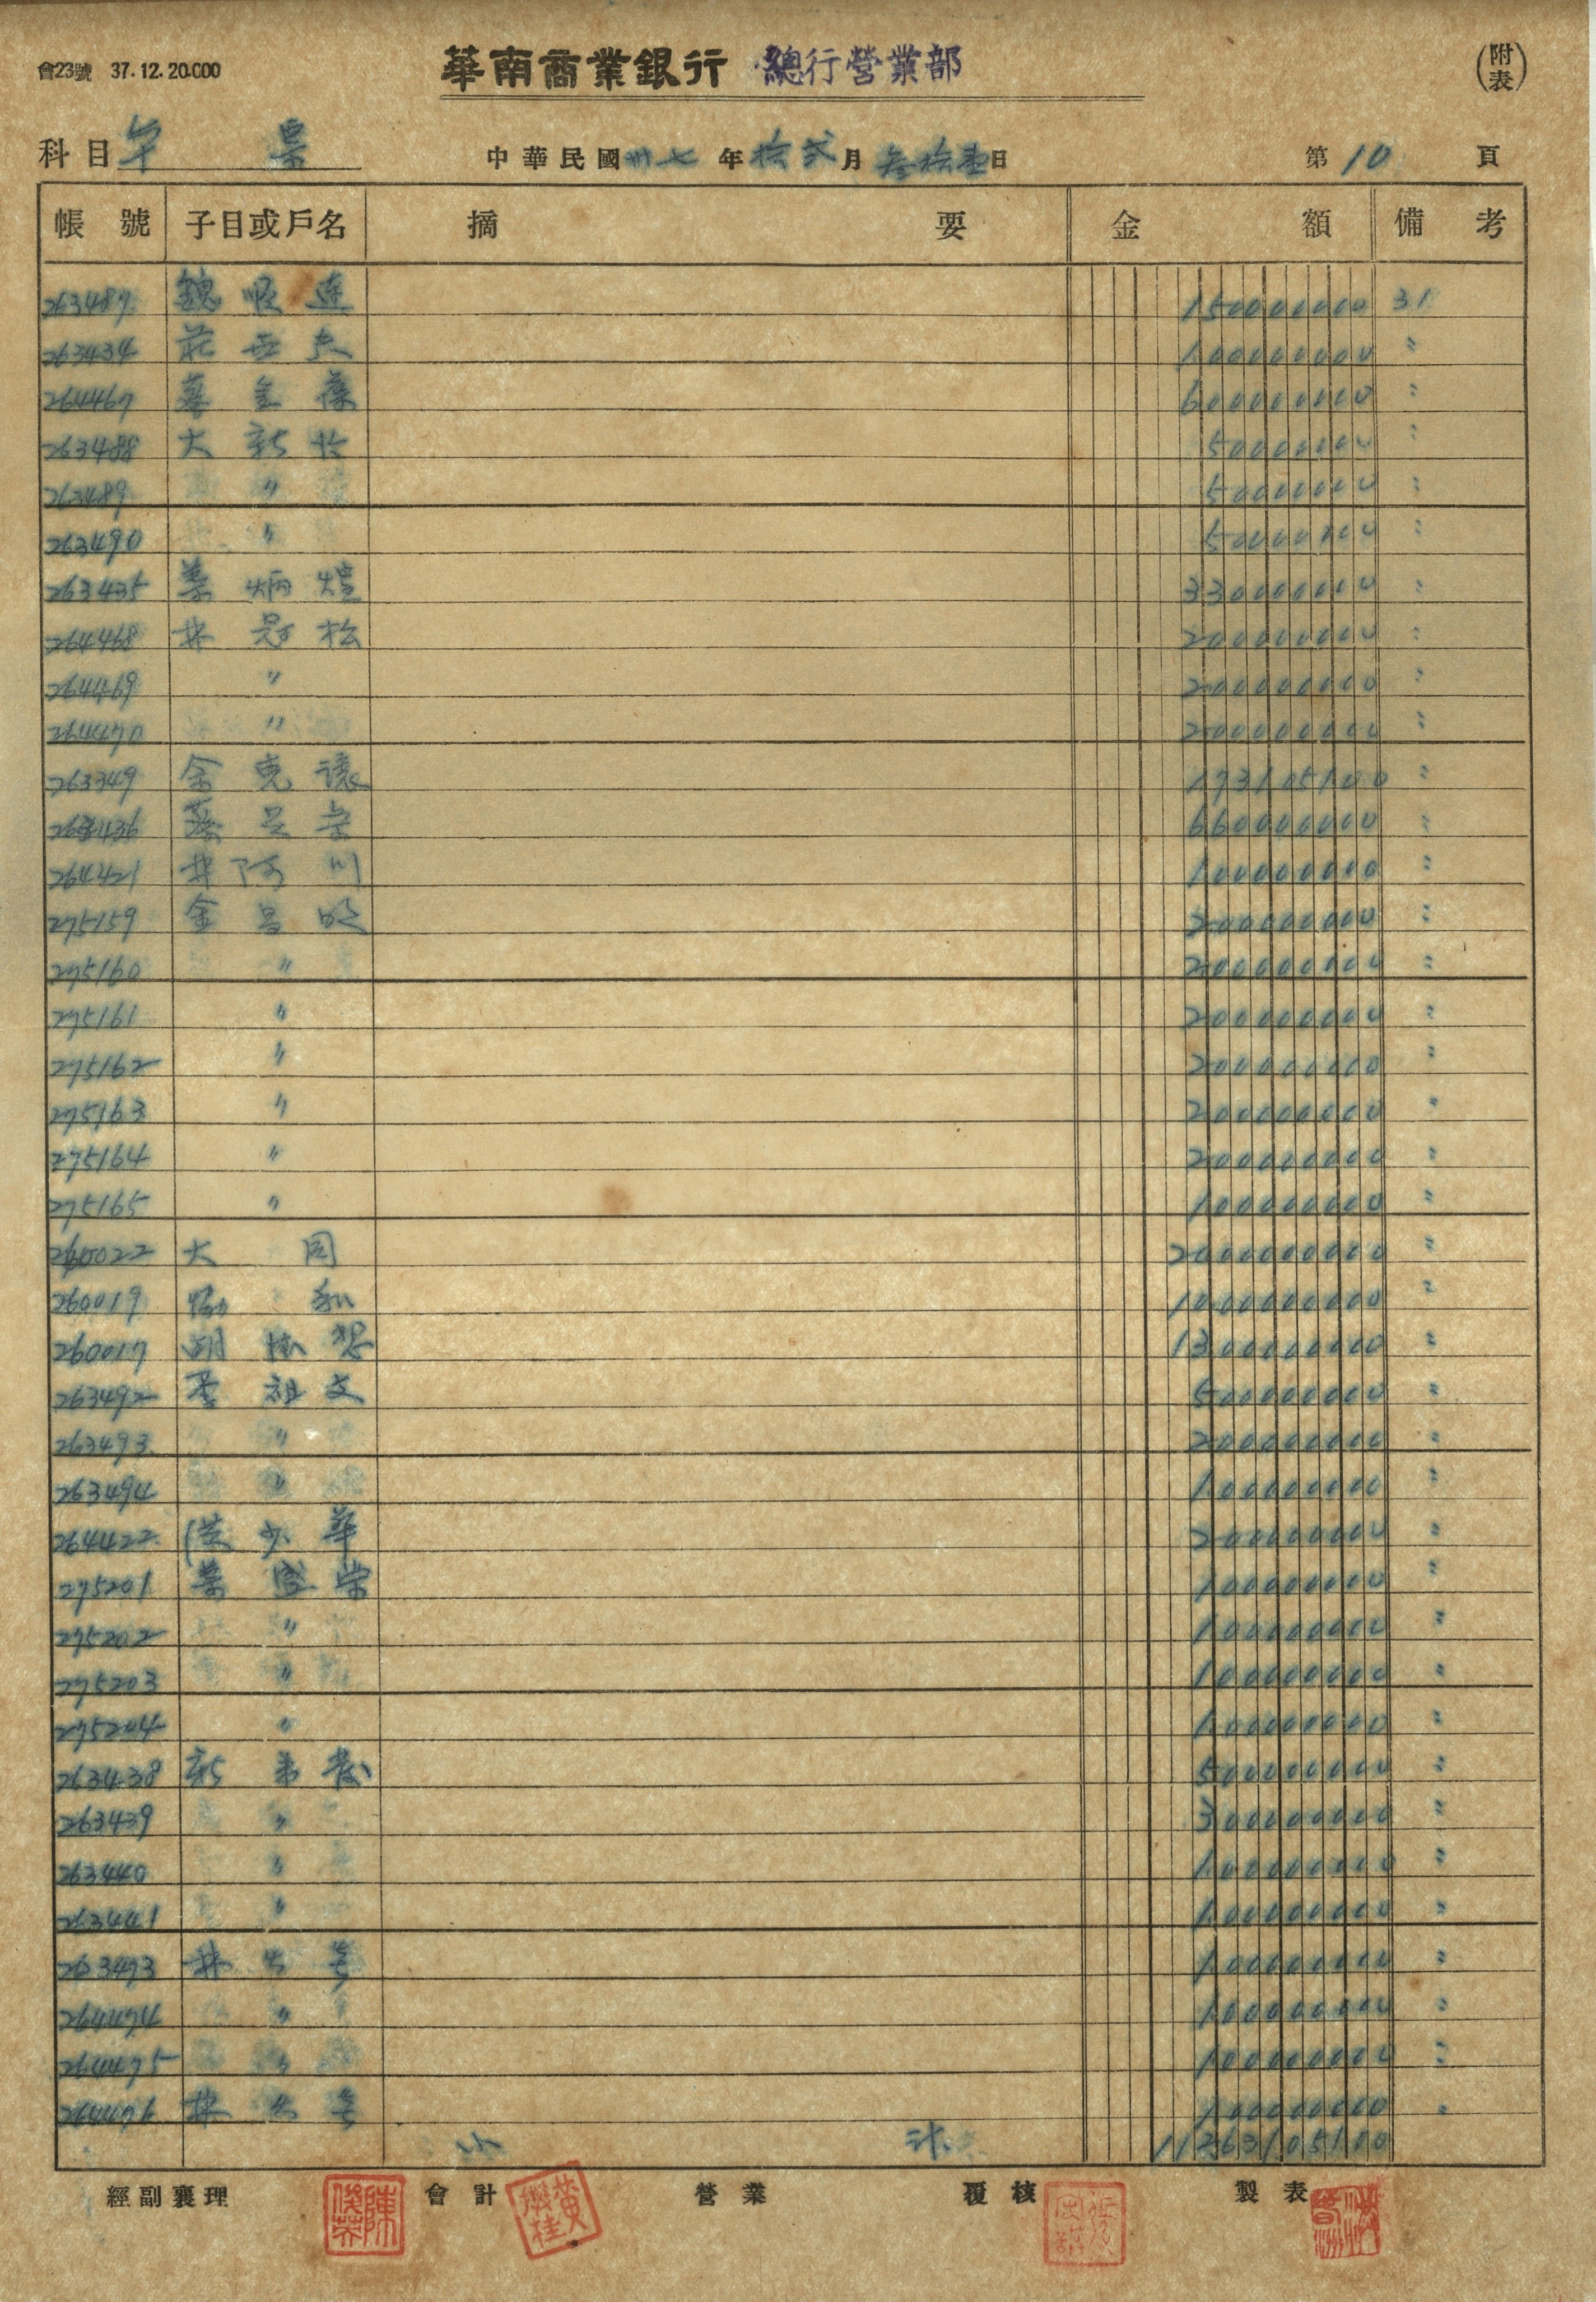 會23號 37.12.20.000
華南商業銀行 總行營業部
(附表)
科目 中華民國卅七年拾弍月叁拾壹日 第10頁
帳號 子目或戶名 摘要 金額 備考
263487 魏順連 150000000 31
263434 莊 100000000 〃
264467 蔡金葆 600000000 〃
263488 大新 50000000 〃
263489 〃 50000000 〃
263490 〃 50000000 〃
263435 葉炳煌 330000000 〃
264468 林冠松 200000000 〃
264469 〃 200000000 〃
264470 〃 200000000 〃
263349 余克讓 173105100 〃
263436 蔡 660000000 〃
264421 林阿川 100000000 〃
275159 金 200000000 〃
275160 〃 200000000 〃
275161 〃 200000000 〃
275162 〃 200000000 〃
275163 〃 200000000 〃
275164 〃 200000000 〃
275165 〃 100000000 〃
260022 大同 2000000000 〃
260019 協和 1000000000 〃
260017 胡 1300000000 〃
263492 李祖文 500000000 〃
263493 〃 200000000 〃
263494 〃 100000000 〃
264422 洪少華 200000000 〃
275201 葉盛榮 100000000 〃
275202 〃 100000000 〃
275203 〃 100000000 〃
275204 〃 100000000 〃
263438 新 500000000 〃
263439 〃 300000000 〃
263440 〃 100000000 〃
263441 〃 100000000 〃
263473 林 100000000 〃
264474 〃 100000000 〃
264475 〃 100000000 〃
264476 林 100000000 〃
小計 11263105100
經副襄理 會計 營業 覆核 製表